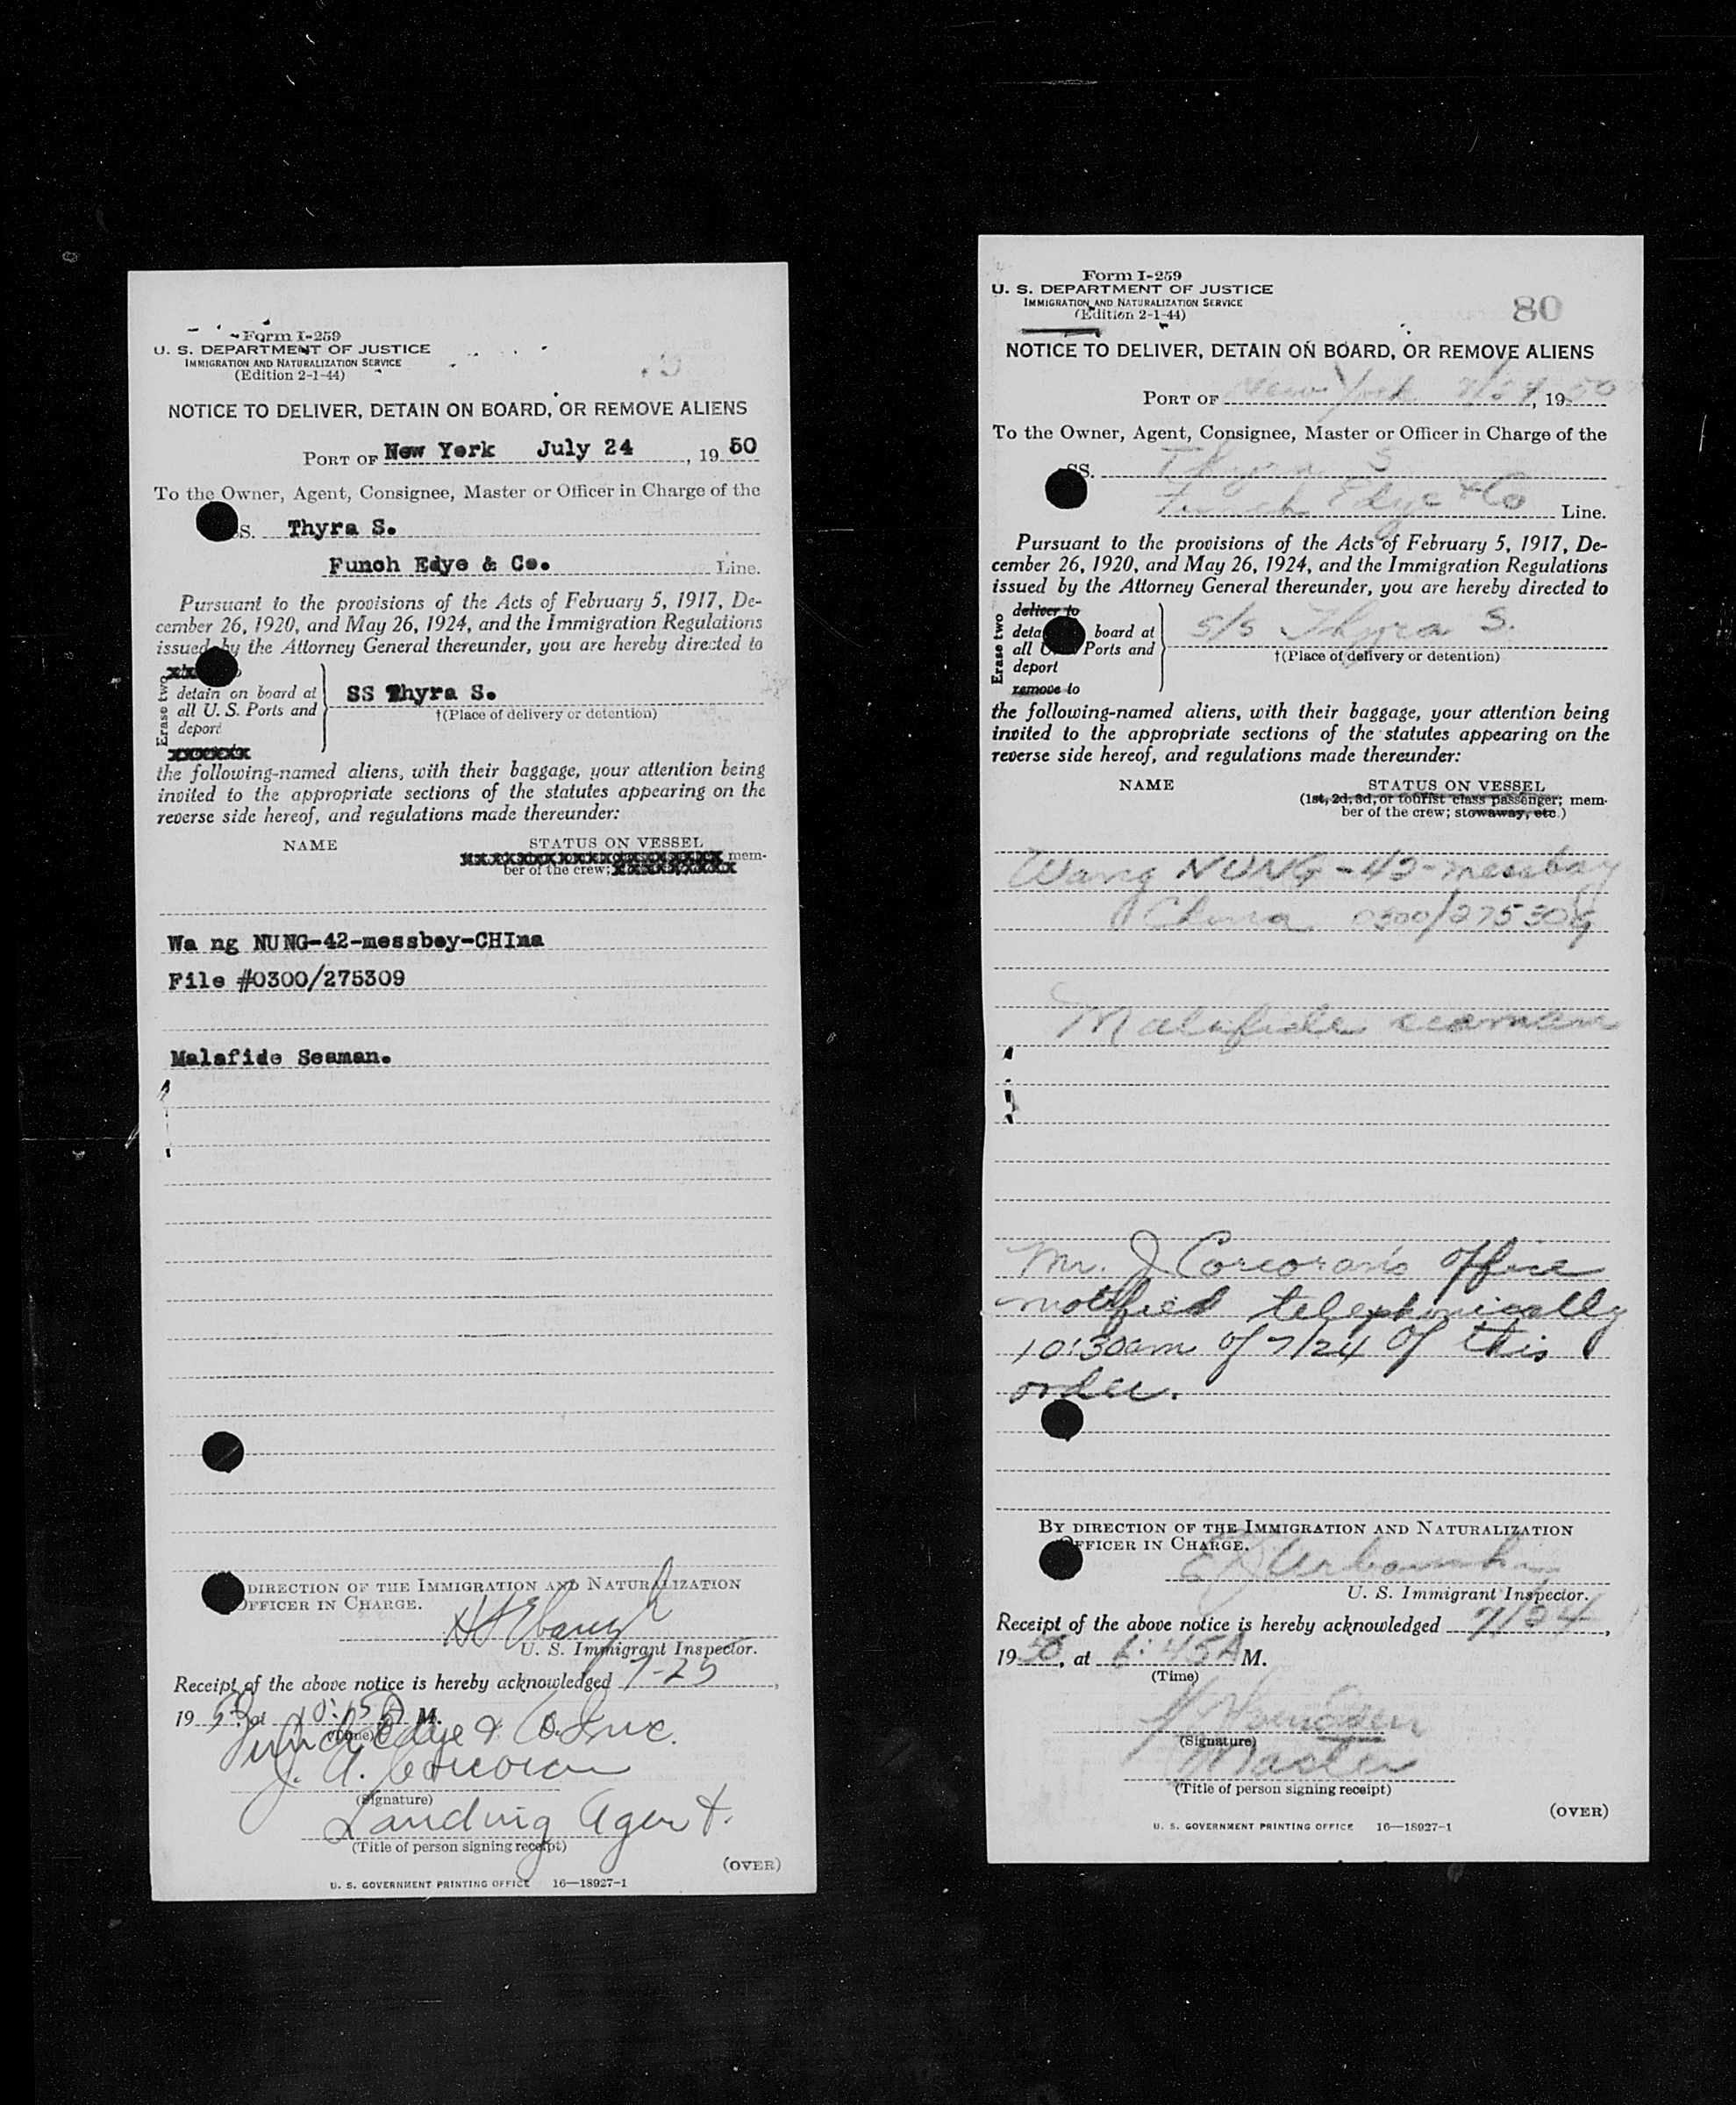 Form I-259
U. S. DEPARTMENT OF JUSTICE
IMMIGRATION AND NATURALIZATION SERVICE
(Edition 2-1-44)
NOTICE TO DELIVER, DETAIN ON BOARD, OR REMOVE ALIENS
PORT OF New York July 24, 19 50
To the Owner, Agent, Consignee, Master or Officer in Charge of the
S. Thyra S.
Funch Edye & Co. Line.
Pursuant to the provisions of the Acts of February 5, 1917, De-
cember 26, 1920, and May 26, 1924, and the Immigration Regulations
issued by the Attorney General thereunder, you are hereby directed to
Erase two
detain on board at
all U. S. Ports and
deport
SS Thyra S.
†(Place of delivery or detention)
xxxxxxx
the following-named aliens, with their baggage, your attention being
invited to the appropriate sections of the statutes appearing on the
reverse side hereof, and regulations made thereunder:
NAME STATUS ON VESSEL
mem-
ber of the crew;
Wa ng NUNG-42-messboy-CHIna
File #0300/275309
Malafide Seaman.
DIRECTION OF THE IMMIGRATION AND NATURALIZATION
OFFICER IN CHARGE.
U. S. Immigrant Inspector.
Receipt of the above notice is hereby acknowledged 7-25,
19 50, at 10:15 A M.
(Time)
Funch Edye & Co. Inc.
J. A. Corcoran
(Signature)
Landing Agent.
(Title of person signing receipt)
(OVER)
U. S. GOVERNMENT PRINTING OFFICE 16—18927-1
Form I-259
U. S. DEPARTMENT OF JUSTICE
IMMIGRATION AND NATURALIZATION SERVICE
(Edition 2-1-44)
80
NOTICE TO DELIVER, DETAIN ON BOARD, OR REMOVE ALIENS
PORT OF New York 7/24, 19 50
To the Owner, Agent, Consignee, Master or Officer in Charge of the
SS. Thyra S
Funch Edye & Co Line.
Pursuant to the provisions of the Acts of February 5, 1917, De-
cember 26, 1920, and May 26, 1924, and the Immigration Regulations
issued by the Attorney General thereunder, you are hereby directed to
Erase two
deliver to
deta board at
all U. Ports and
deport
remove to
S/S Thyra S.
†(Place of delivery or detention)
the following-named aliens, with their baggage, your attention being
invited to the appropriate sections of the statutes appearing on the
reverse side hereof, and regulations made thereunder:
NAME STATUS ON VESSEL
(1st, 2d, 3d, or tourist class passenger; mem-
ber of the crew; stowaway, etc.)
Wang NUNG-42-messboy
China 0300/275309
Malafide seaman
Mr. J Corcoran's office
notified telephonically
10:30am of 7/24 of this
order.
BY DIRECTION OF THE IMMIGRATION AND NATURALIZATION
OFFICER IN CHARGE.
U. S. Immigrant Inspector.
Receipt of the above notice is hereby acknowledged 7/24,
19 50, at 6:45 A M.
(Time)
(Signature)
Master
(Title of person signing receipt)
(OVER)
U. S. GOVERNMENT PRINTING OFFICE 16—18927-1